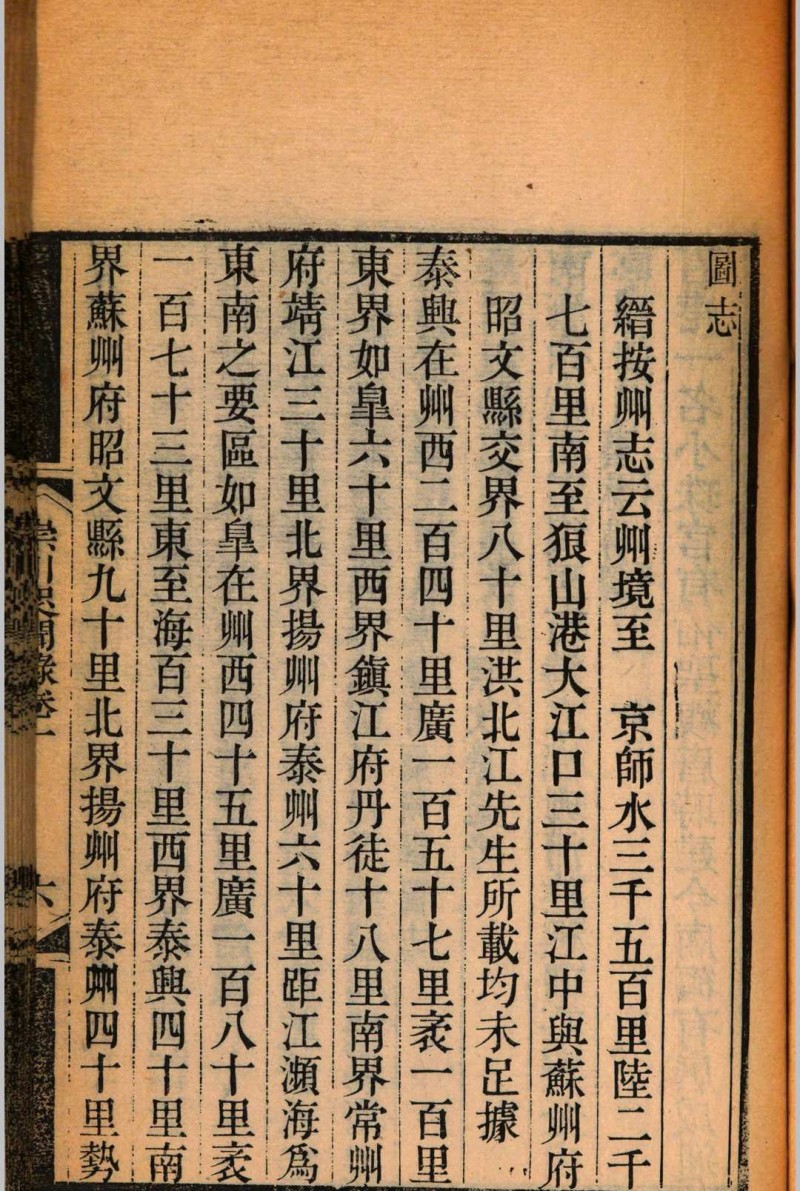 圖志
縉按州志云州境至　京師水三千五百里陸二千
七百里南至狼山港大江口三十里江中與蘇州府
昭文縣交界八十里洪北江先生所載均未足據
泰興在州西二百四十里廣一百五十七里袤一百里
東界如臯六十里西界鎮江府丹徒十八里南界常州
府靖江三十里北界揚州府泰州六十里距江瀕海為
東南之要區如臯在州西四十五里廣一百八十里袤
一百七十三里東至海百三十里西界泰興四十里南
界蘇州府昭文縣九十里北界揚州府泰州四十里勢
崇川咫聞錄卷一
六